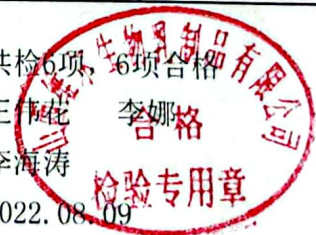 共检6项，6项合格
王伟花 李娜
李海涛
2022.08.09
生物制品有限公司
合格
检验专用章